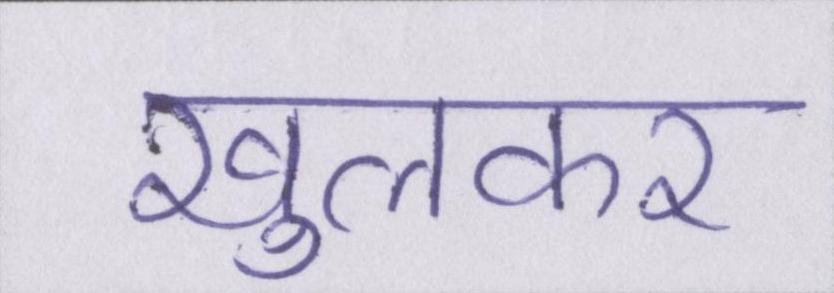 खुलकर